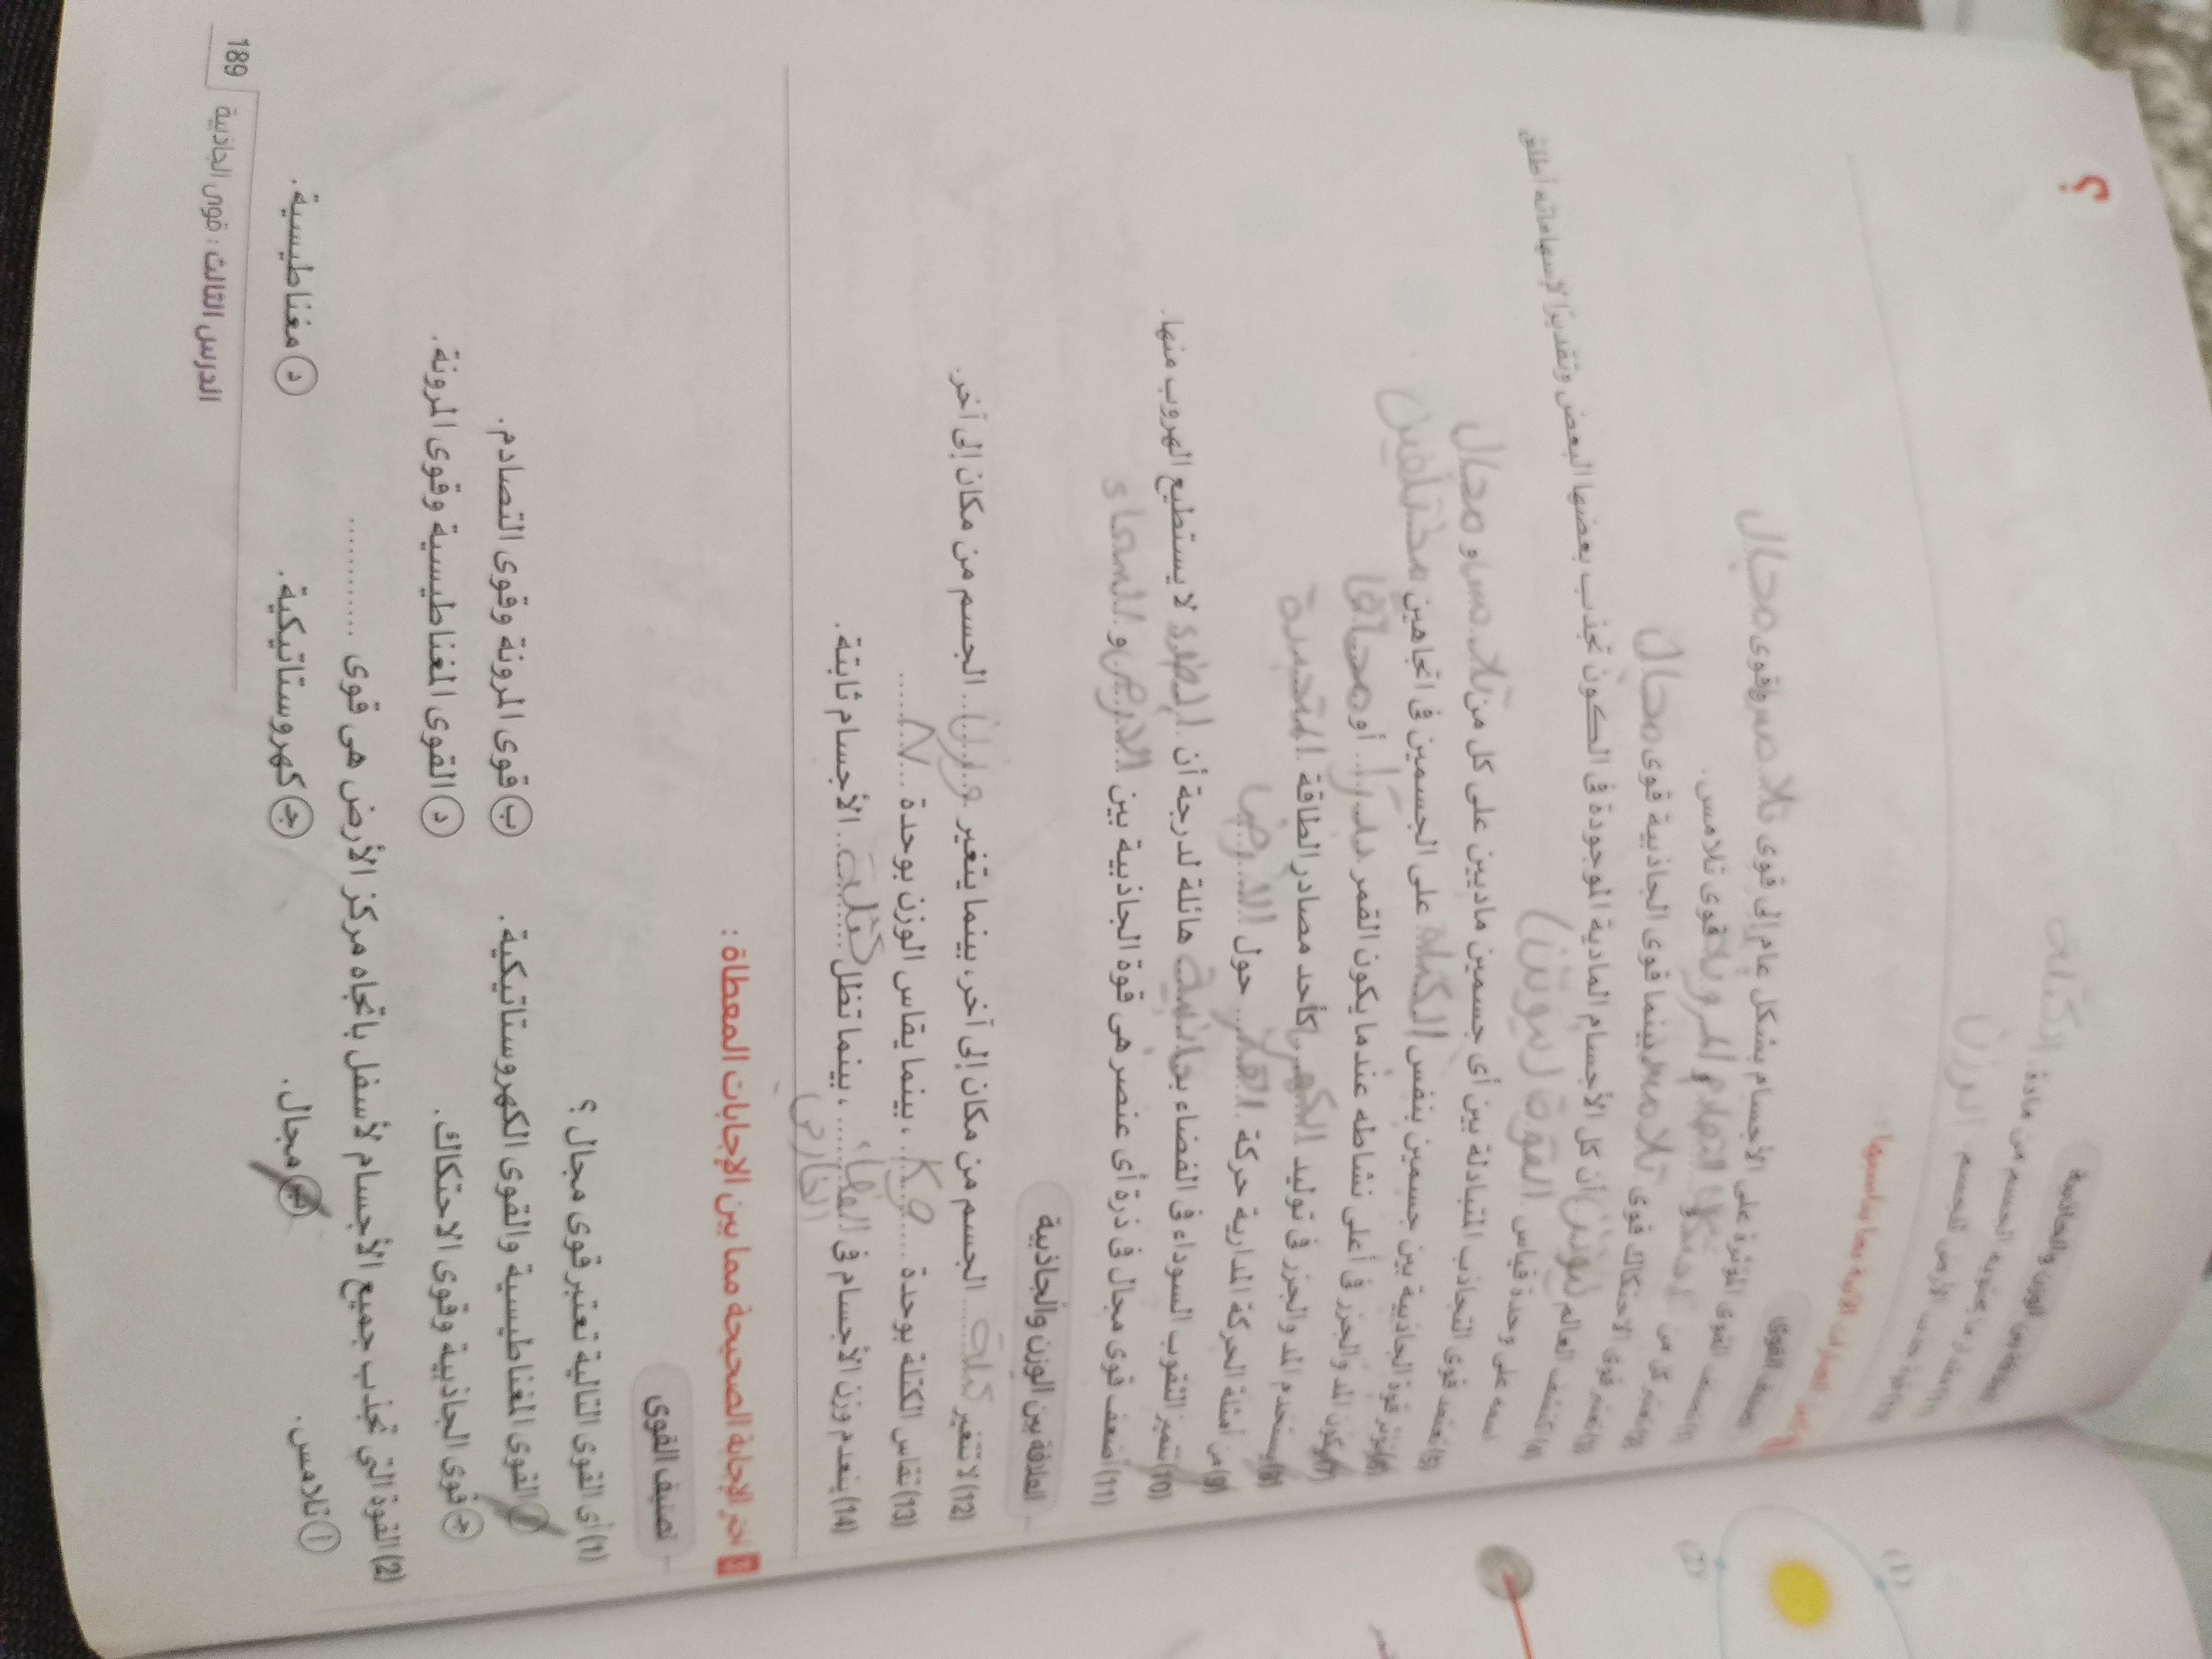 العلاقة بين الوزن والجاذبية
مقدار ما يحتويه الجسم من مادة. الكتلة
قوة جذب الأرض للجسم الوزن
أكمل العبارات الآتية بما يناسبها:
تصنيف القوى
(1) تصنف القوى المؤثرة على الأجسام بشكل عام إلى قوى تلا مسه وقوى مجال
(2) تعتبر كل من احتكاك التصادم والمرونة قوى تلامس.
(3) تعتبر قوى الاحتكاك قوى تلامس بينما قوى الجاذبية قوى مجال
(4) اكتشف العالم نيوتن أن كل الأجسام المادية الموجودة فى الكون تجذب بعضها البعض وتقديرًا لإسهاماته أطلق
اسمه على وحدة قياس القوة (نيوتن)
(5) تعتمد قوى التجاذب المتبادلة بين أى جسمين ماديين على كل من
(6) تؤثر قوة الجاذبية بين جسمين بنفس الكتلة على الجسمين فى اتجاهين مختلفين.
(7) يكون المد والجزر فى أعلى نشاطه عندما يكون القمر بدرًا أو محاقا
(8) يستخدم المد والجزر فى توليد الكهرباء كأحد مصادر الطاقة المتجددة
(9) من أمثلة الحركة المدارية حركة القمر حول الارض
(10) تتميز الثقوب السوداء فى الفضاء بجاذبية هائلة لدرجة أن الضوء لا يستطيع الهروب منها.
(11) أضعف قوى مجال فى ذرة أى عنصر هى قوة الجاذبية بين الارض و السماء
العلاقة بين الوزن والجاذبية
(12) لا تتغير كتلة الجسم من مكان إلى آخر، بينما يتغير وزن الجسم من مكان إلى آخر.
(13) تقاس الكتلة بوحدة Kg، بينما يقاس الوزن بوحدة N
(14) ينعدم وزن الأجسام فى الفضاء، بينما تظل كتلة الأجسام ثابتة.
(الخارجى)
اختر الإجابة الصحيحة مما بين الإجابات المعطاة:
تصنيف القوى
(1) أى القوى التالية تعتبر قوى مجال ؟
أ القوى المغناطيسية والقوى الكهروستاتيكية. ب قوى المرونة وقوى التصادم.
ج قوى الجاذبية وقوى الاحتكاك. د القوى المغناطيسية وقوى المرونة.
(2) القوة التى تجذب جميع الأجسام لأسفل باتجاه مركز الأرض هى قوى ..........
أ تلامس. ب مجال. ج كهروستاتيكية. د مغناطيسية.
الدرس الثالث : قوى الجاذبية 189